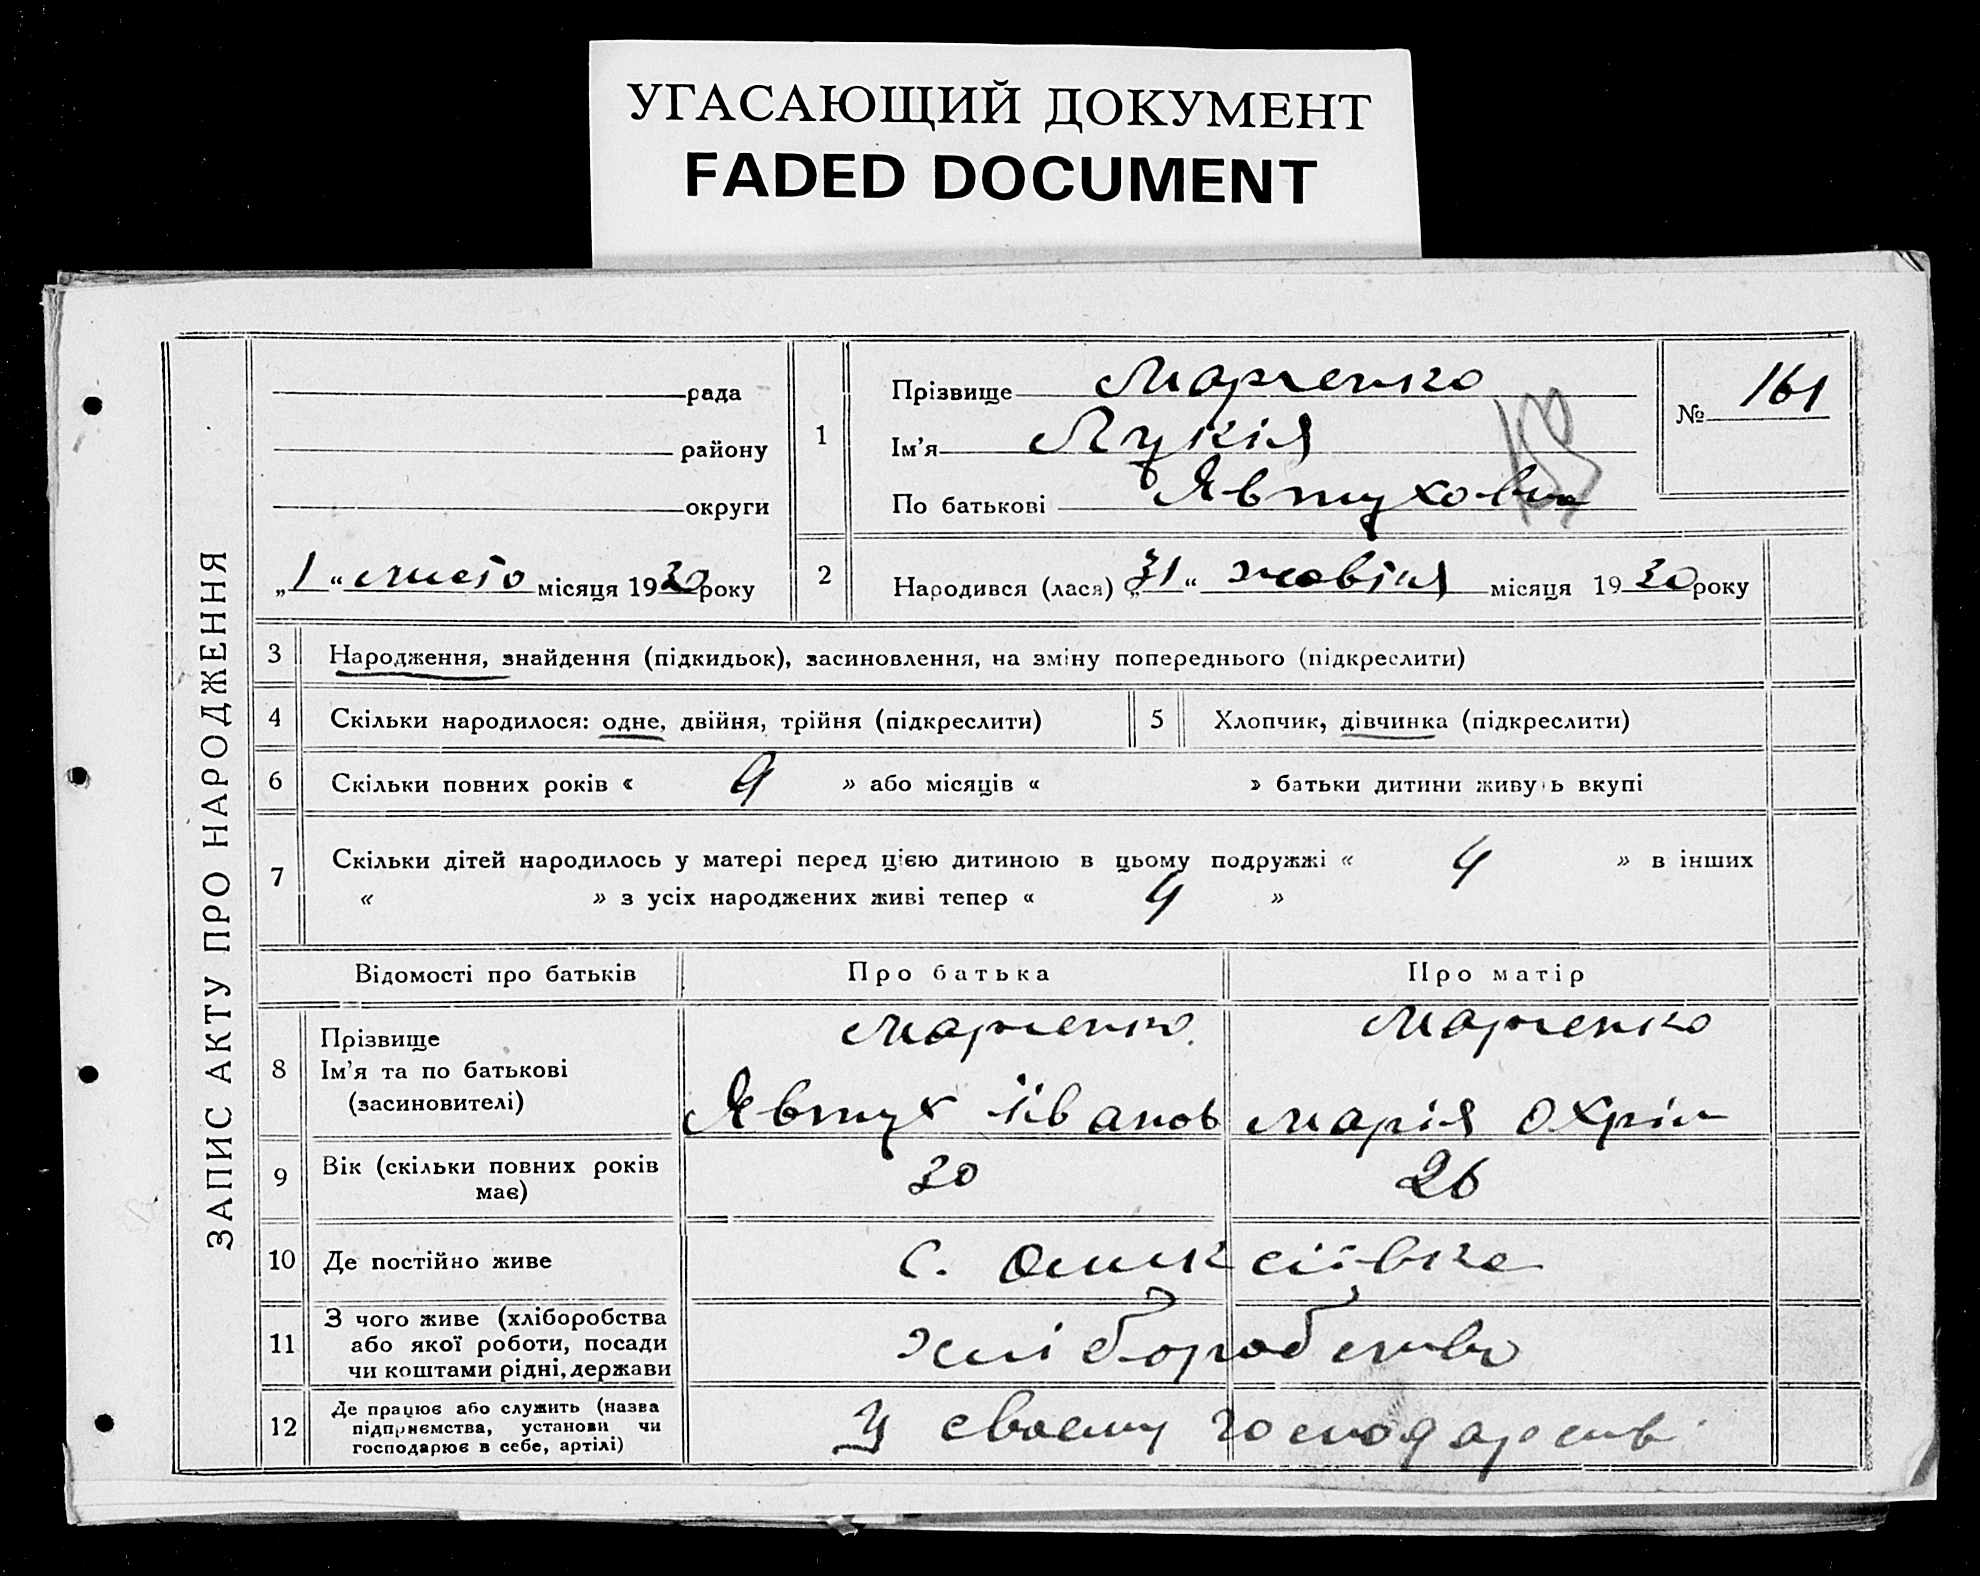 УГАСАЮЩИЙ ДОКУМЕНТ
FADED DOCUMENT
ЗАПИС АКТУ ПРО НАРОДЖЕННЯ
рада
району
округи
„1“ листо місяця 1930 року
1
Прізвище Марченко
Ім'я Лукія
По батькові Явтуховна
№ 161
2
Народився (лася) „31“ жовтня місяця 1930 року
3 Народження, знайдення (підкидьок), засиновлення, на зміну попереднього (підкреслити)
4 Скільки народилося: одне, двійня, трійня (підкреслити)
5 Хлопчик, дівчинка (підкреслити)
6 Скільки повних років « 9 » або місяців « » батьки дитини живуь вкупі
7 Скільки дітей народилось у матері перед цією дитиною в цьому подружжі « 4 » в інших
« » з усіх народжених живі тепер « 4 »
Відомості про батьків Про батька Про матір
8 Прізвище
Ім'я та по батькові
(засиновителі)
Марченко Марченко
Явтух Іванов Марія Охрім
9 Вік (скільки повних років
має)
30 26
10 Де постійно живе
с. Оликсіївка
11 З чого живе (хліборобства
або якої роботи, посади
чи коштами рідні, держави
хліборобство
12 Де працює або служить (назва
підприємства, установи чи
господарює в себе, артілі)
У своєму господарстві